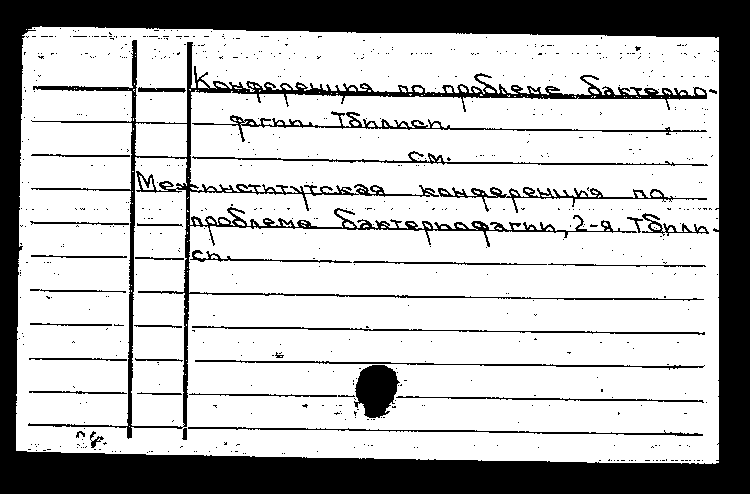 Конференция по проблеме бактерио-
фагии. Тбилиси.
см.
Межинститутская конференция по
проблеме бактериофагии, 2-я. Тбили-
си.